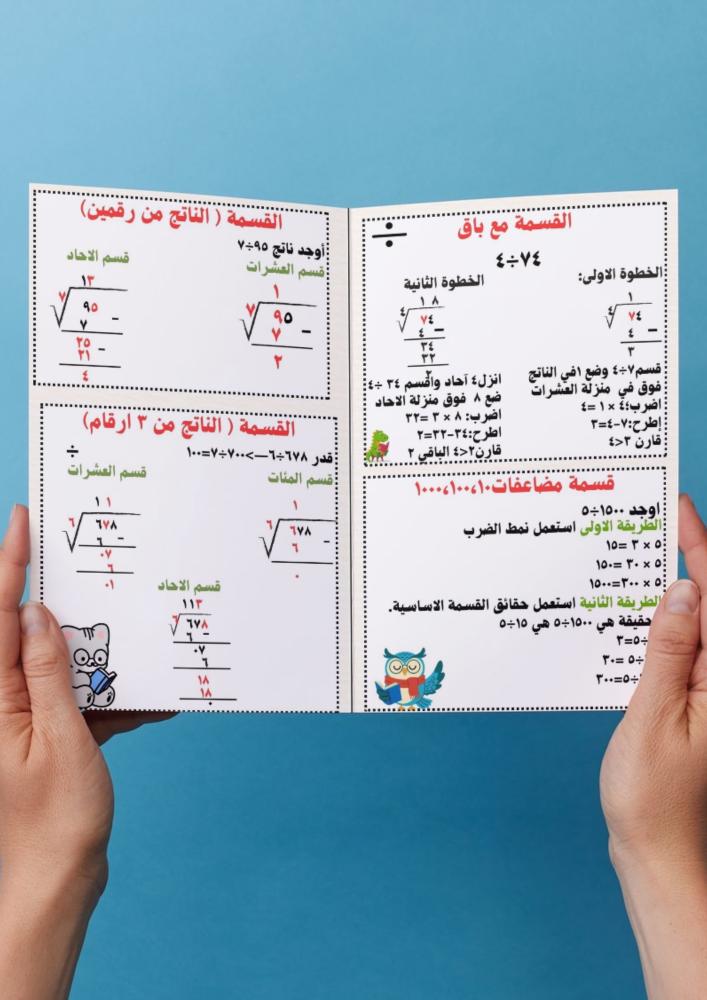 القسمة مع باق
÷
٧٤÷٤
الخطوة الاولى:
١
٤ ٧٤
٤ –
٣
قسم٧÷٤ وضع ١في الناتج
فوق في منزلة العشرات
اضرب؛٤ × ١ =٤
إطرح:٧-٤=٣
قارن ٣<٤
الخطوة الثانية
١ ٨
٤ ٧٤
٤ –
٣٤
٣٢
٢
انزل٤ آحاد واقسم ٣٤ ÷٤
ضع ٨ فوق منزلة الاحاد
اضرب: ٨ × ٣ =٣٢
اطرح:٣٤-٣٢=٢
قارن٢<٤ الباقي ٢
قسمة مضاعفات١٠،١٠٠،١٠٠٠
اوجد ١٥٠٠÷٥
الطريقة الاولى استعمل نمط الضرب
٥ × ٣ =١٥
٥ × ٣٠ =١٥٠
٥ × ٣٠٠=١٥٠٠
الطريقة الثانية استعمل حقائق القسمة الاساسية.
حقيقة هي ١٥٠٠÷٥ هي ١٥÷٥
÷٥=٣
÷٥ =٣٠
÷٥=٣٠٠
القسمة ( الناتج من رقمين)
أوجد ناتج ٩٥÷٧
قسم العشرات
١
٧ ٩٥
٧ –
٢
قسم الاحاد
١٣
٧ ٩٥
٧ –
٢٥
٢١ –
٤
القسمة ( الناتج من ٣ ارقام)
÷
قدر ٦٧٨÷٦—>٧٠٠÷٧=١٠٠
قسم المئات
١
٦ ٦٧٨
٦ –
٠
قسم العشرات
١ ١
٦ ٦٧٨
٦ –
٠٧
٦
٠١
قسم الاحاد
١١٣
٦ ٦٧٨
٦ –
٠٧
٦
١٨
١٨
٠